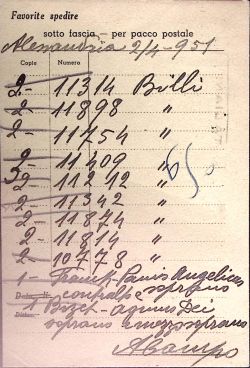 Favorite spedire
sotto fascia - per pacco postale
Alessandria 2/4-951
Copie Numero
2- 11314 Billi
2- 11898 "
2- 11754 "
2- 11409 "
2- 11212 "
2- 11342 "
2- 11874 "
2- 11814 "
2- 10778 "
1- Franck-Panis Angelicus
contralto e soprano
1 Bizet-Agnus Dei
soprano e mezzosoprano